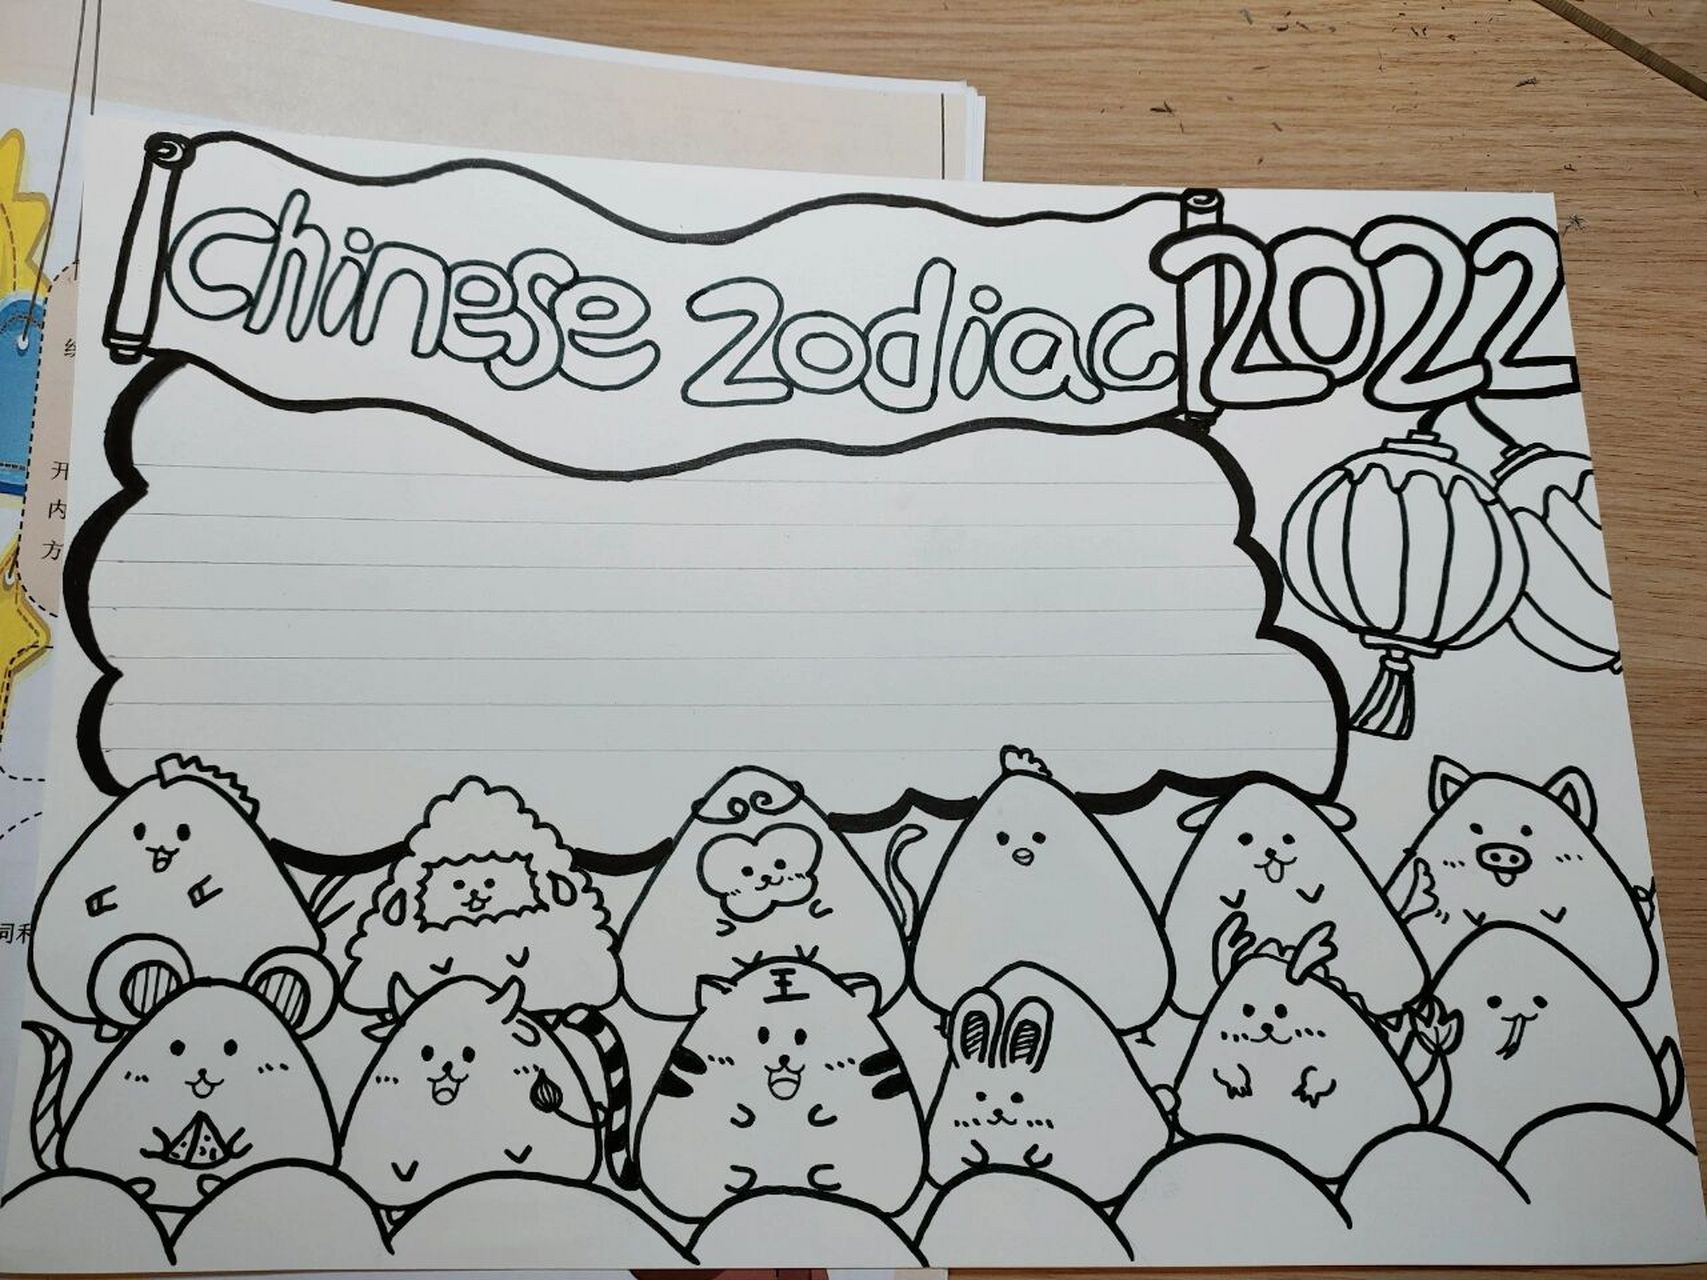 Chinese Zodiac 2022
开
内
方
王